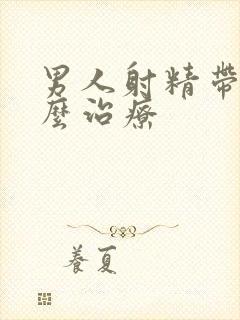 男人射精帶
麼治療
養夏